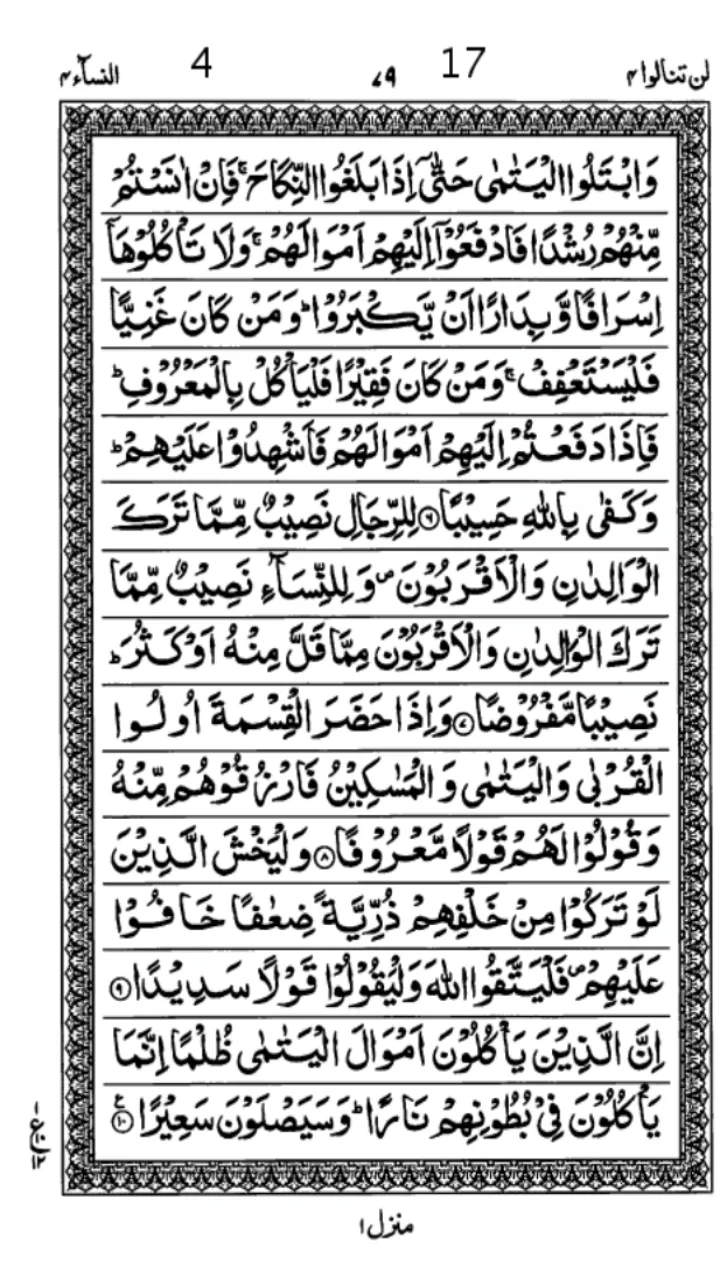 لن تنالوا ۴ 17 ۷۹ 4 النسآء ۴
وَابْتَلُوا الْيَتٰمٰى حَتّٰٓى اِذَا بَلَغُوا النِّكَاحَ ۚ فَاِنْ اٰنَسْتُمْ
مِّنْهُمْ رُشْدًا فَادْفَعُوْٓا اِلَيْهِمْ اَمْوَالَهُمْ ۚ وَلَا تَاْكُلُوْهَاۤ
اِسْرَافًا وَّبِدَارًا اَنْ يَّكْبَرُوْا ؕ وَمَنْ كَانَ غَنِيًّا
فَلْيَسْتَعْفِفْ ۚ وَمَنْ كَانَ فَقِيْرًا فَلْيَاْكُلْ بِالْمَعْرُوْفِ ؕ
فَاِذَا دَفَعْتُمْ اِلَيْهِمْ اَمْوَالَهُمْ فَاَشْهِدُوْا عَلَيْهِمْ ؕ
وَكَفٰى بِاللّٰهِ حَسِيْبًا ۶ لِلرِّجَالِ نَصِيْبٌ مِّمَّا تَرَكَ
الْوَالِدٰنِ وَالْاَقْرَبُوْنَ ۪ وَلِلنِّسَآءِ نَصِيْبٌ مِّمَّا
تَرَكَ الْوَالِدٰنِ وَالْاَقْرَبُوْنَ مِمَّا قَلَّ مِنْهُ اَوْ كَثُرَ ؕ
نَصِيْبًا مَّفْرُوْضًا ۷ وَاِذَا حَضَرَ الْقِسْمَةَ اُولُوا
الْقُرْبٰى وَالْيَتٰمٰى وَالْمَسٰكِيْنُ فَارْزُقُوْهُمْ مِّنْهُ
وَقُوْلُوْا لَهُمْ قَوْلًا مَّعْرُوْفًا ۸ وَلْيَخْشَ الَّذِيْنَ
لَوْ تَرَكُوْا مِنْ خَلْفِهِمْ ذُرِّيَّةً ضِعٰفًا خَافُوْا
عَلَيْهِمْ ۪ فَلْيَتَّقُوا اللّٰهَ وَلْيَقُوْلُوْا قَوْلًا سَدِيْدًا ۹
اِنَّ الَّذِيْنَ يَاْكُلُوْنَ اَمْوَالَ الْيَتٰمٰى ظُلْمًا اِنَّمَا
يَاْكُلُوْنَ فِيْ بُطُوْنِهِمْ نَارًا ؕ وَسَيَصْلَوْنَ سَعِيْرًا ۱۰ ع
منزل ۱